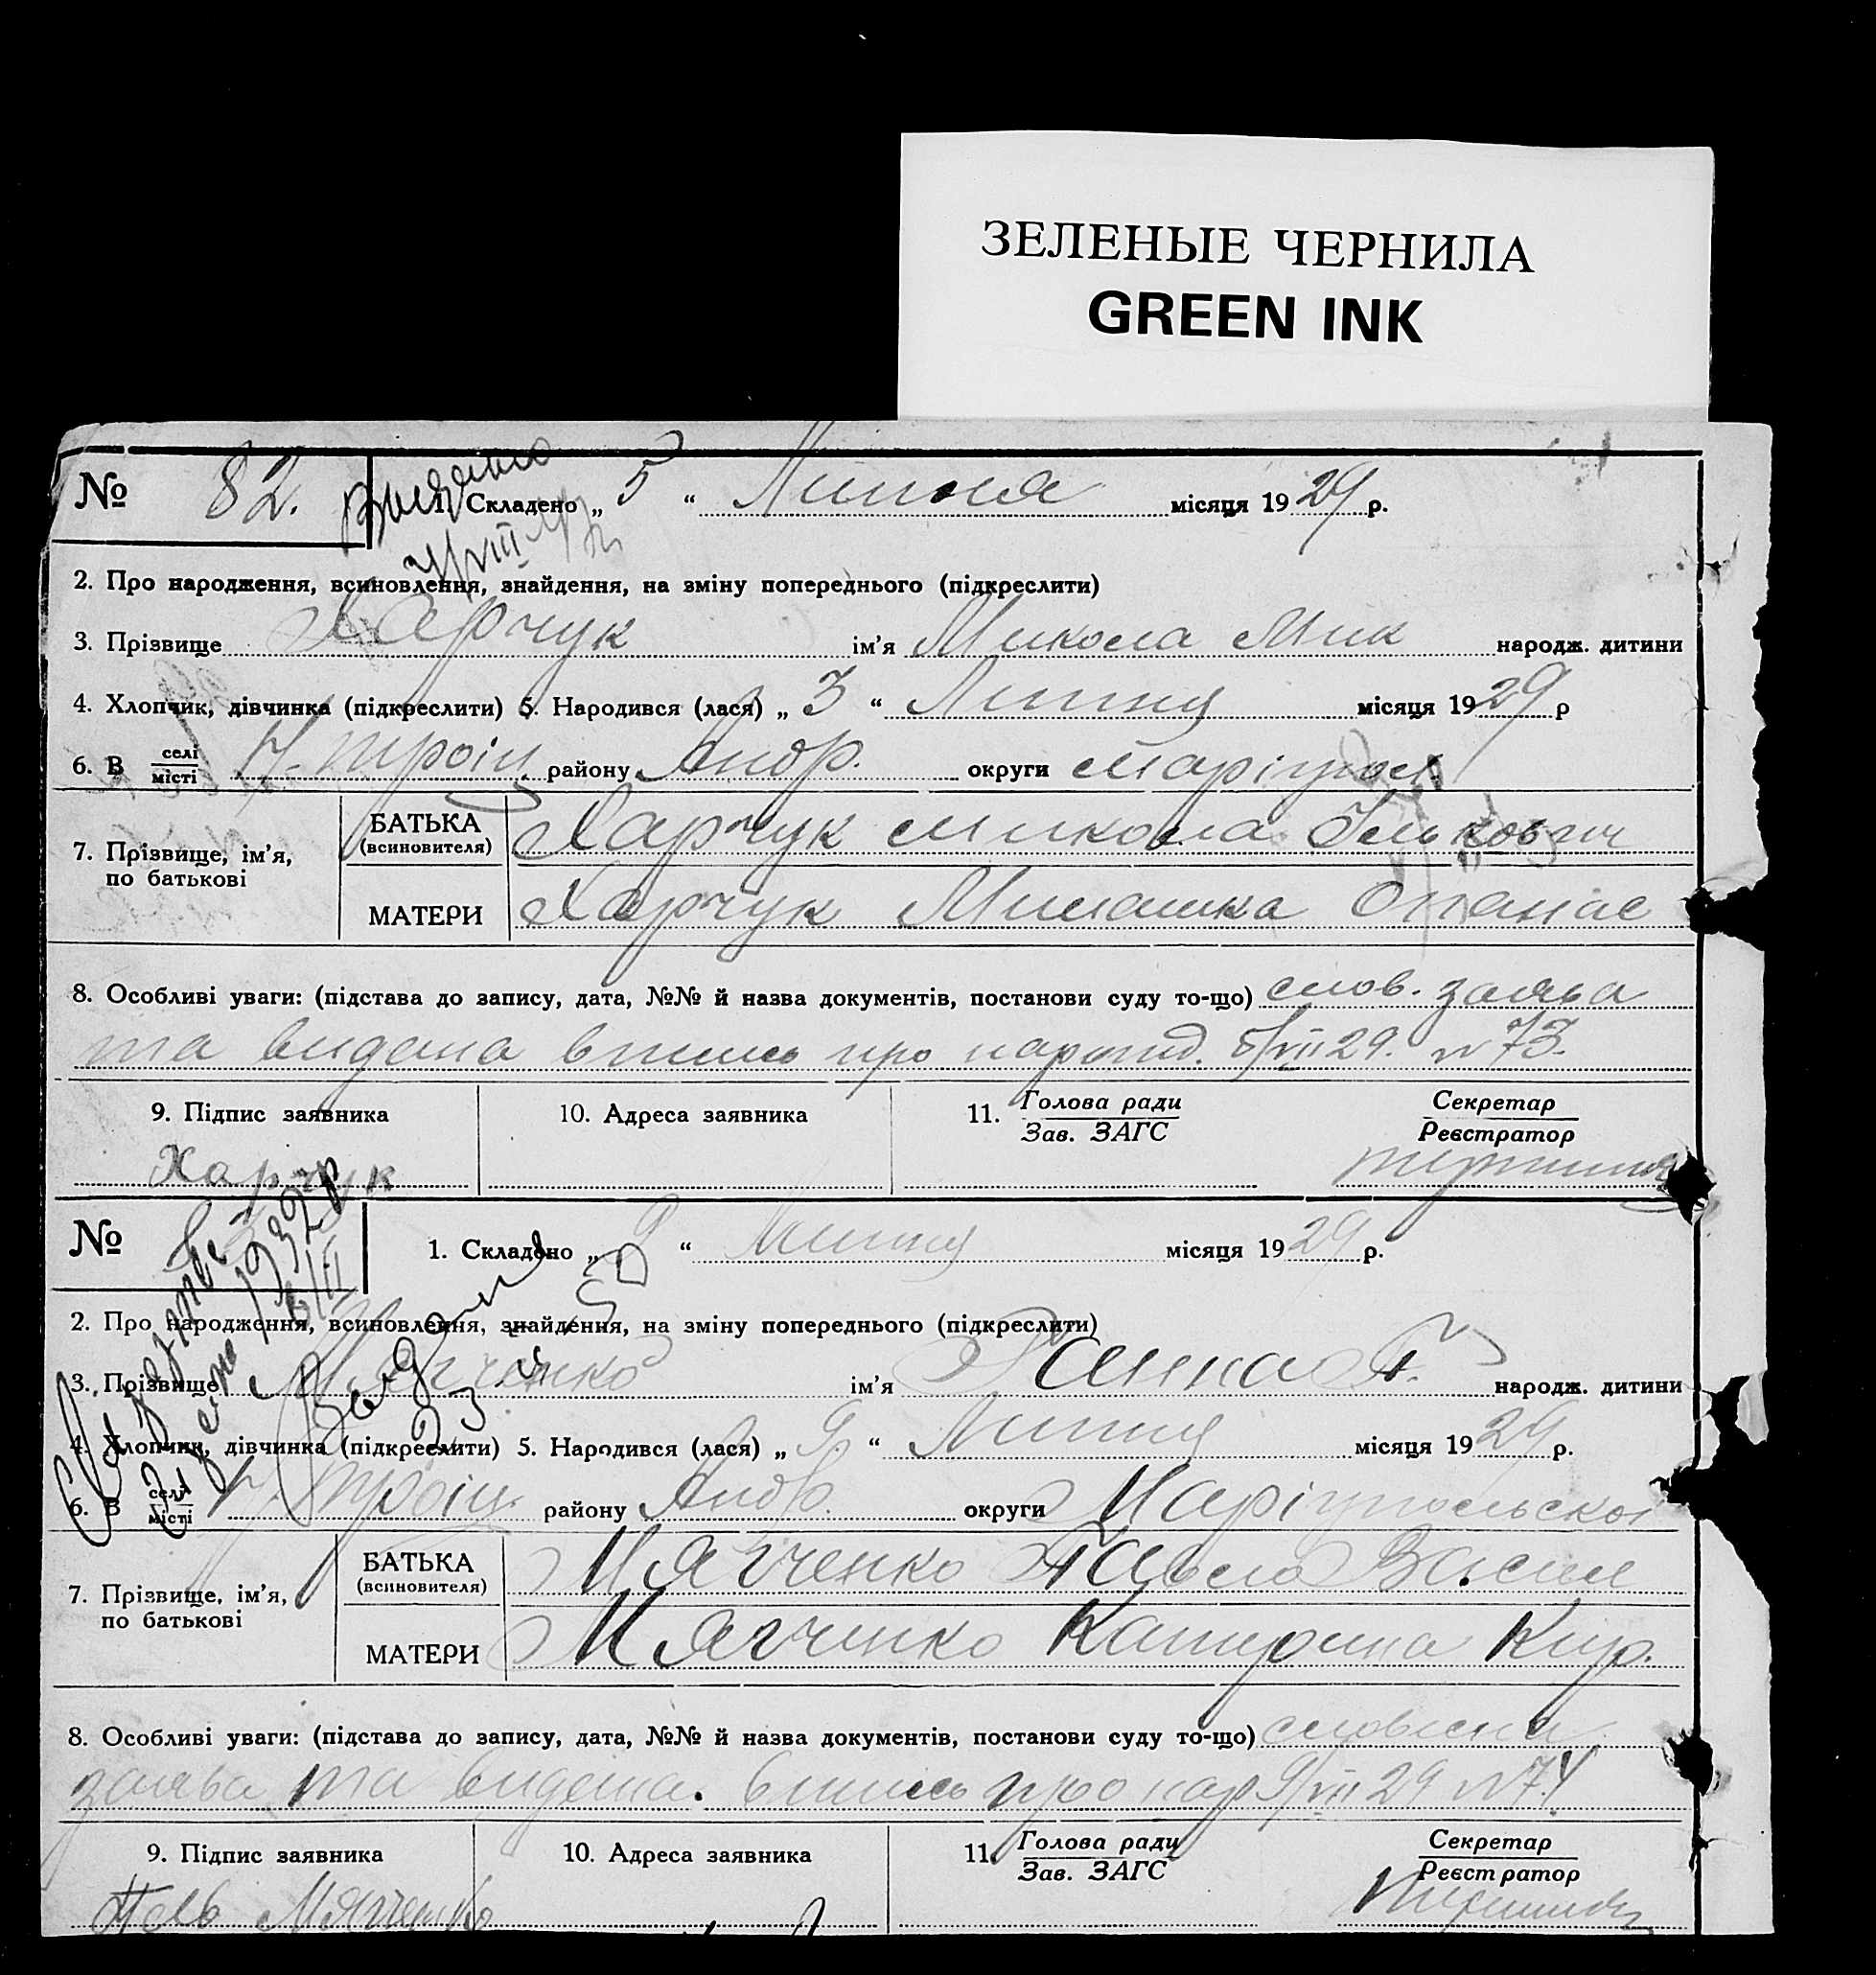 ЗЕЛЕНЫЕ ЧЕРНИЛА
GREEN INK
№ 82. 1. Складено „ 5 “ Липня місяця 1929 р.
Видано
2. Про народження, всиновлення, знайдення, на зміну попереднього (підкреслити)
3. Прізвище Харчук ім’я Микола Мик народж. дитини
4. Хлопчик, дівчинка (підкреслити) 5. Народився (лася) „ 3 “ Липня місяця 1929 р
6. В селі/місті Н.-Троіц. району Андр. округи Маріупол.
7. Прізвище, ім’я, по батькові
БАТЬКА (всиновителя) Харчук Микола
МАТЕРИ Харчук Опанас
8. Особливі уваги: (підстава до запису, дата, №№ й назва документів, постанови суду то-що) слов. заява
та видана випись про народ. 5/VII 29. № 73.
9. Підпис заявника 10. Адреса заявника 11. Голова ради/Зав. ЗАГС Секретар/Реєстратор
Харчук
№ 1. Складено „ 9 “ Липня місяця 1929 р.
2. Про народження, всиновлення, знайдення, на зміну попереднього (підкреслити)
3. Прізвище Мягченко ім’я Ганна П. народж. дитини
4. Хлопчик, дівчинка (підкреслити) 5. Народився (лася) „ “ Липня місяця 1929 р.
6. В селі/місті Н.-Троіц. району Андр. округи Маріупольскоі
7. Прізвище, ім’я, по батькові
БАТЬКА (всиновителя) Мягченко Павло Васил
МАТЕРИ Мягченко Катерина Кир.
8. Особливі уваги: (підстава до запису, дата, №№ й назва документів, постанови суду то-що) словесна
заява та видана випись про нар 9/VII 29 № 74
9. Підпис заявника 10. Адреса заявника 11. Голова ради/Зав. ЗАГС Секретар/Реєстратор
Мягченко